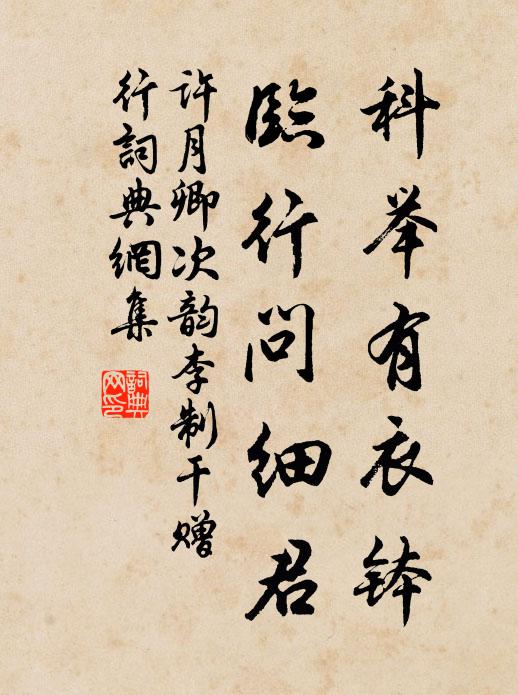 科举有衣钵
臨行问细君
許月卿次韵李制干赠
行詞典網集
詞典
网印